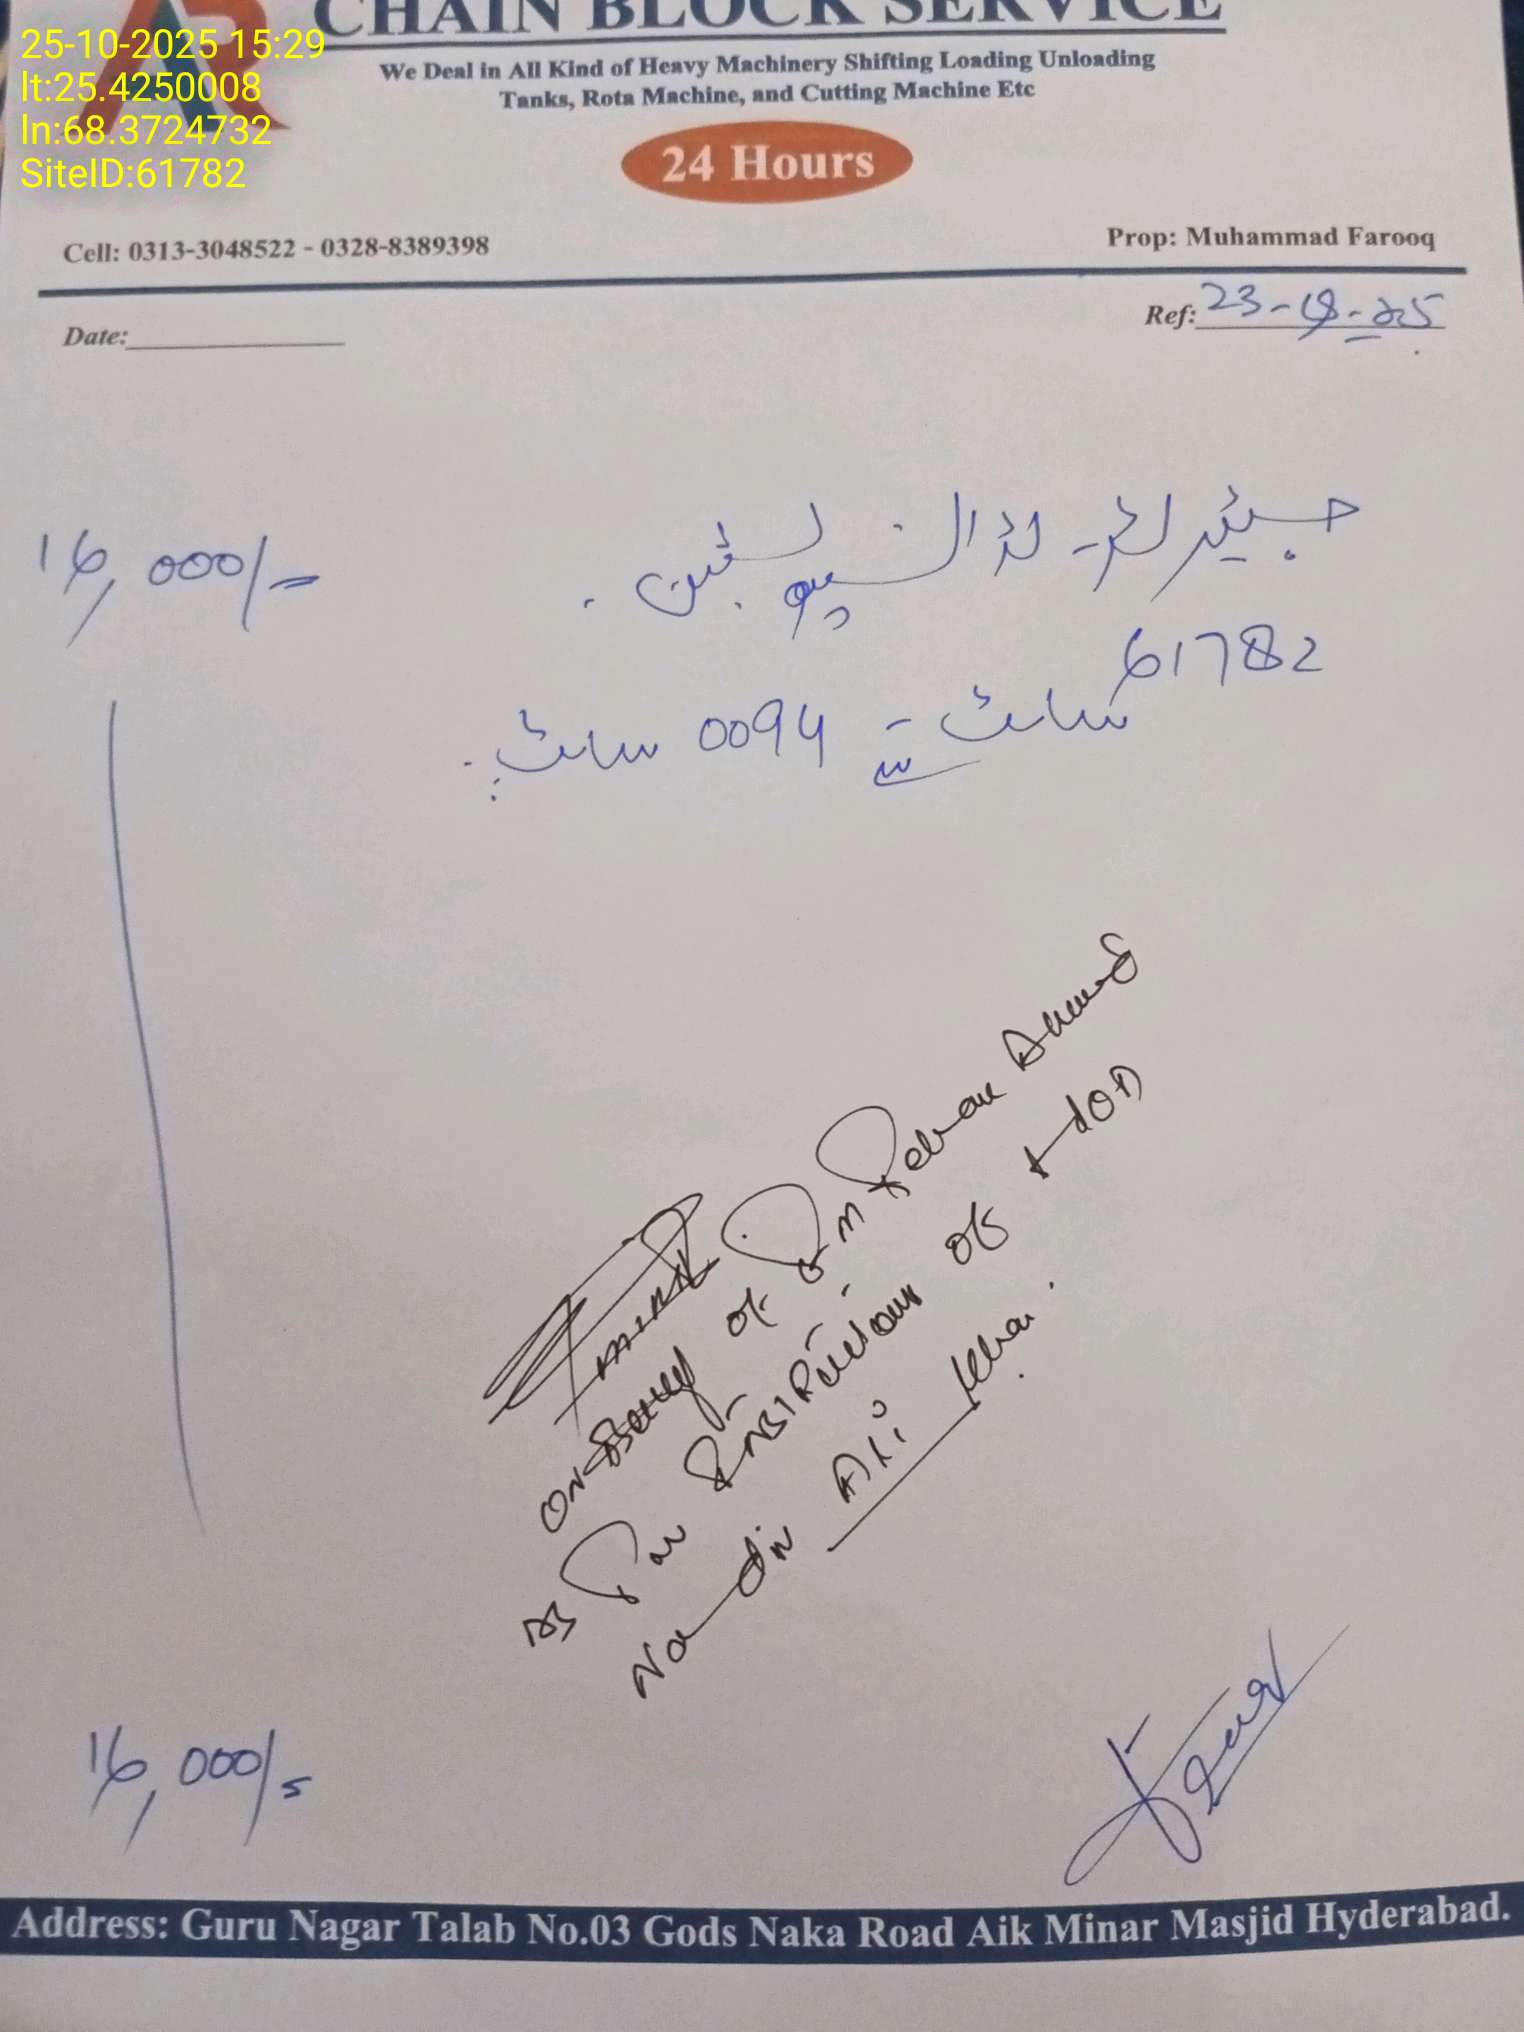 CHAIN BLOCK SERVICE
25-10-2025 15:29
lt:25.4250008
ln:68.3724732
SiteID:61782
We Deal in All Kind of Heavy Machinery Shifting Loading Unloading
Tanks, Rota Machine, and Cutting Machine Etc
24 Hours
Cell: 0313-3048522 - 0328-8389398
Prop: Muhammad Farooq
Ref: 23-
Date:
16,000/-
61782
سائٹ سے 0094 سائٹ
of RM Rehan Ahmed
As Per Instructions of HOD
Ali Khan.
16,000/-
Address: Guru Nagar Talab No.03 Gods Naka Road Aik Minar Masjid Hyderabad.